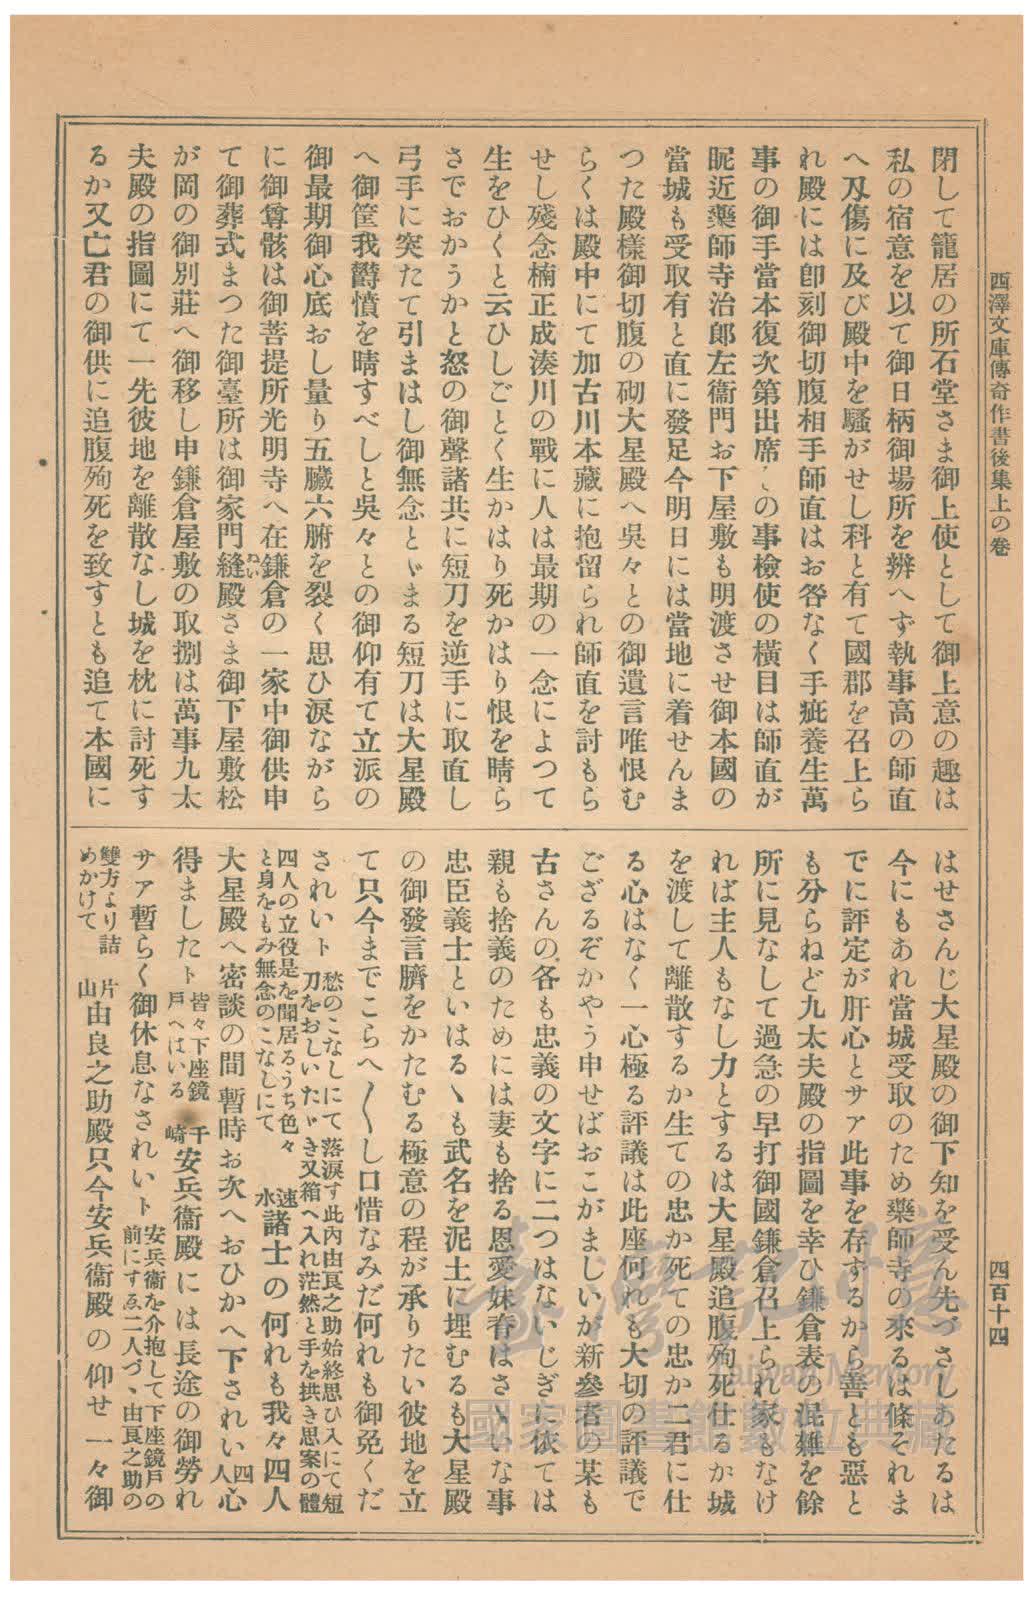 西澤文庫傳奇作書後集上の卷
四百十四
閉して籠居の所石堂さま御上使として御上意の趣は
私の宿意を以て御日柄御場所を辨へず執事高の師直
へ刄傷に及び殿中を騷がせし科と有て國郡を召上ら
れ殿には卽刻御切腹相手師直はお咎なく手疵養生萬
事の御手當本復次第出席との事檢使の橫目は師直が
昵近藥師寺治郎左衞門お下屋敷も明渡させ御本國の
當城も受取有と直に發足今明日には當地に着せんま
つた殿樣御切腹の砌大星殿へ吳々との御遺言唯恨む
らくは殿中にて加古川本藏に抱留られ師直を討もら
せし殘念楠正成湊川の戰に人は最期の一念によつて
生をひくと云ひしごとく生かはり死かはり恨を晴ら
さでおかうかと怒の御聲諸共に短刀を逆手に取直し
弓手に突たて引まはし御無念とゞまる短刀は大星殿
へ御筐我欝憤を晴すべしと吳々との御仰有て立派の
御最期御心底おし量り五臟六腑を裂く思ひ淚ながら
に御尊骸は御菩提所光明寺へ在鎌倉の一家中御供申
て御葬式まつた御臺所は御家門縫殿さま御下屋敷松
ぬい
が岡の御別莊へ御移し申鎌倉屋敷の取捌は萬事九太
夫殿の指圖にて一先彼地を離散なし城を枕に討死す
るか又亡君の御供に追腹殉死を致すとも追て本國に
はせさんじ大星殿の御下知を受ん先づさしあたるは
今にもあれ當城受取のため藥師寺の來るは條それま
でに評定が肝心とサァ此事を存するから善とも惡と
も分らねど九太夫殿の指圖を幸ひ鎌倉表の混雜を餘
所に見なして過急の早打御國鎌倉召上られ家もなけ
れば主人もなし力とするは大星殿追腹殉死仕るか城
を渡して離散するか生ての忠か死ての忠か二君に仕
る心はなく一心極る評議は此座何れも大切の評議で
ござるぞかやう申せばおこがましいが新參者の某も
古さんの各も忠義の文字に二つはないじぎに依ては
親も捨義のためには妻も捨る恩愛妹脊はさゝいな事
忠臣義士といはるゝも武名を泥土に埋むるも大星殿
の御發言臍をかたむる極意の程が承りたい彼地を立
て只今までこらへ〳〵し口惜なみだ何れも御免くだ
されいト
愁のこなしにて落淚す此內由良之助始終思ひ入にて短
刀をおしいたゞき又箱へ入れ茫然と手を拱き思案の體
四人の立役是を聞居るうち色々
と身をもみ無念のこなしにて
速水
諸士の何れも我々四人
大星殿へ密談の間暫時お次へおひかへ下されい
四人
心
得ましたト
皆々下座鏡
戶へはいる
千崎
安兵衞殿には長途の御勞れ
サァ暫らく御休息なされいト
安兵衞を介抱して下座鏡戶の
前にすゑ二人づゝ由良之助の
雙方より詰
めかけて
片山
由良之助殿只今安兵衞殿の仰せ一々御
臺灣記憶
Taiwan Memory
國家圖書館數位典藏